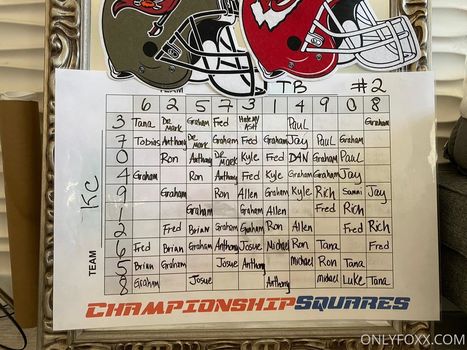 TEAM TB #2
6 2 5 7 3 1 4 9 0 8
3 Tana DR MARK Graham Fred Paul Graham
7 Tobias Anthony DR MARK Graham Fred Graham Jay Paul Graham
0 Ron Anthony DR MARK Kyle Fred DAN Graham Paul
4 Graham Ron Anthony Fred Kyle Graham Graham Jay
9 Graham Ron Allen Graham Kyle Rich Sammi Jay
1 Graham Graham Allen Fred Rich
2 Fred Brian Graham Graham Ron Allen Fred Rich
6 Fred Brian Graham Anthony Josue Michael Ron Tana Fred
5 Brian Graham Josue Anthony Michael Ron Tana
8 Graham Josue Anthony Michael Luke Tana
TEAM KC
CHAMPIONSHIP SQUARES
ONLYFOXX.COM